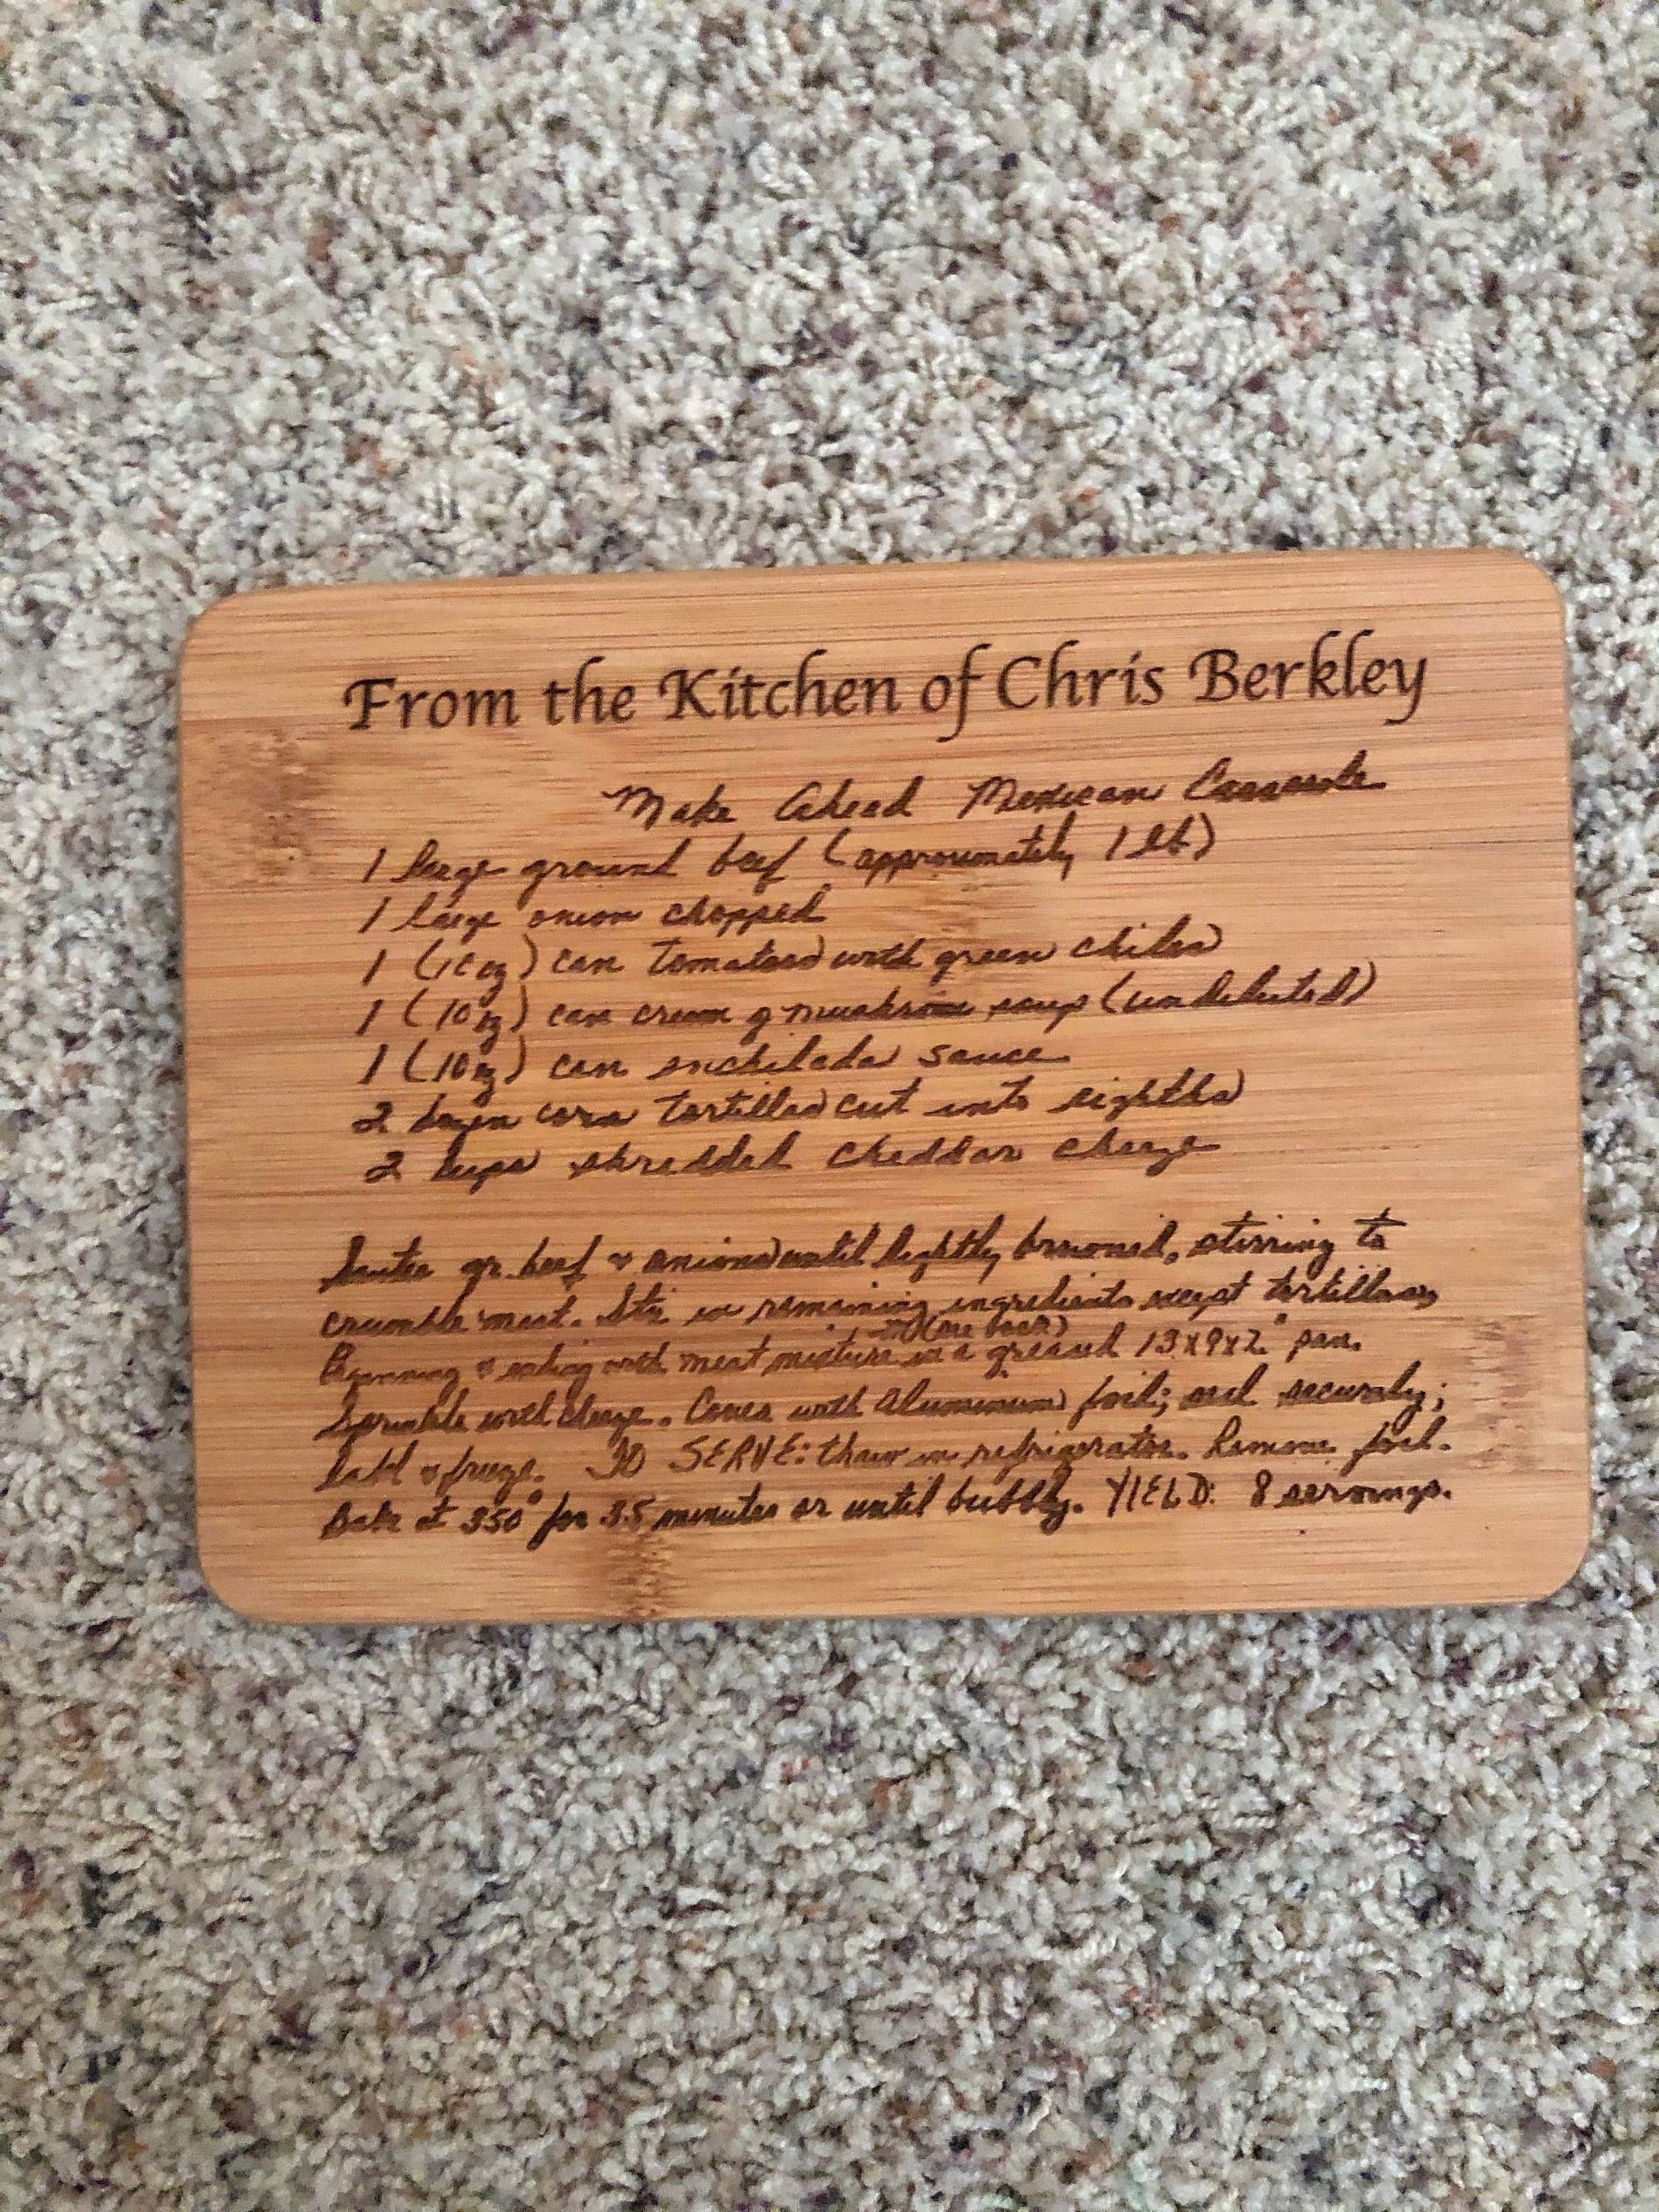 From the Kitchen of Chris Berkley
Make Ahead Mexican Casserole
1 large ground beef (approximately 1 lb)
1 large onion chopped
1 (10 oz) can tomatoes with green chiles
1 (10 oz) can cream of mushroom soup (undiluted)
1 (10 oz) can enchilada sauce
2 dozen corn tortillas cut into eighths
2 cups shredded cheddar cheese
Sautee gr. beef & onions until lightly browned, stirring to
crumble meat. Stir in remaining ingredients except tortillas
(see back)
Beginning & ending with meat mixture in a greased 13x9x2" pan.
Sprinkle with cheese. Cover with aluminum foil; seal securely;
label & freeze. TO SERVE: thaw in refrigerator. Remove foil.
Bake at 350° for 35 minutes or until bubbly. YIELD: 8 servings.